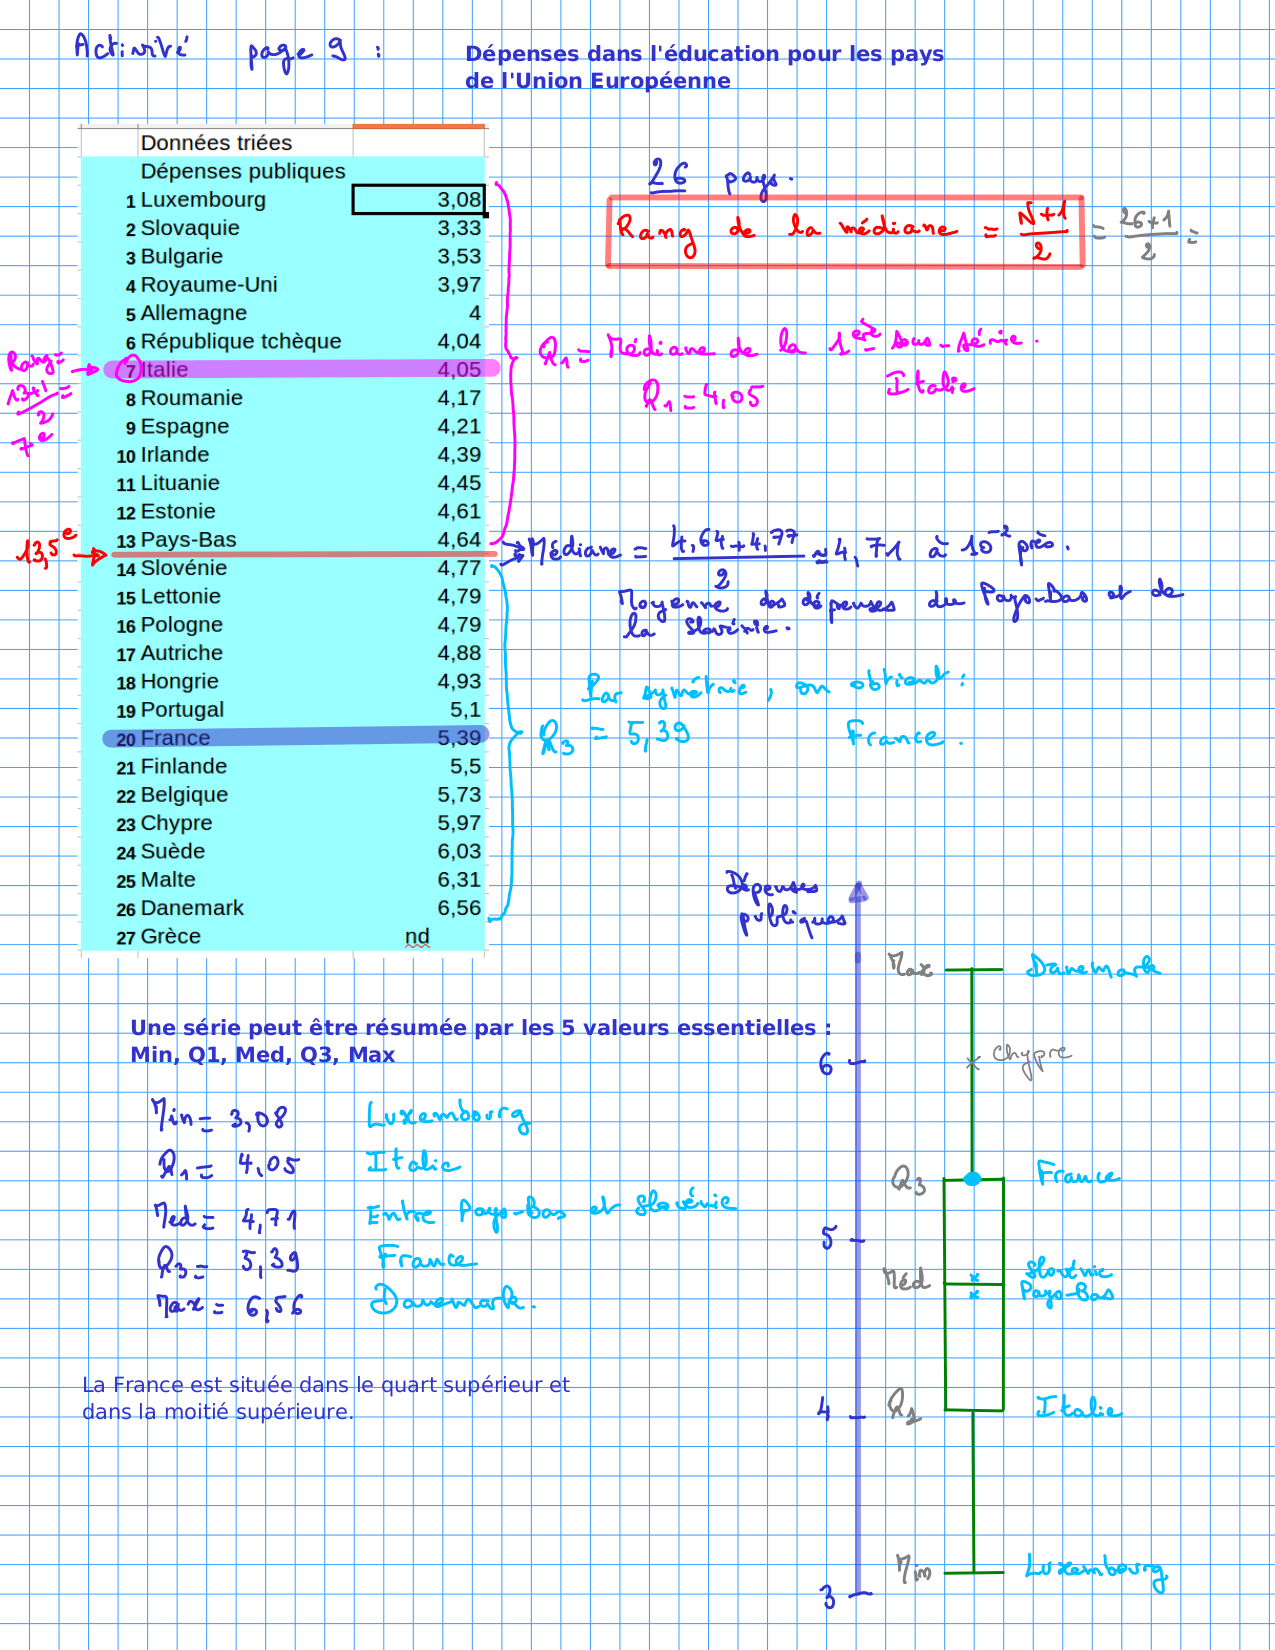 Activité page 9 :
Dépenses dans l'éducation pour les pays
de l'Union Européenne
Données triées
Dépenses publiques
1 Luxembourg 3,08
2 Slovaquie 3,33
3 Bulgarie 3,53
4 Royaume-Uni 3,97
5 Allemagne 4
6 République tchèque 4,04
7 Italie 4,05
8 Roumanie 4,17
9 Espagne 4,21
10 Irlande 4,39
11 Lituanie 4,45
12 Estonie 4,61
13 Pays-Bas 4,64
14 Slovénie 4,77
15 Lettonie 4,79
16 Pologne 4,79
17 Autriche 4,88
18 Hongrie 4,93
19 Portugal 5,1
20 France 5,39
21 Finlande 5,5
22 Belgique 5,73
23 Chypre 5,97
24 Suède 6,03
25 Malte 6,31
26 Danemark 6,56
27 Grèce nd
Rang =
13+1 =
2
7e
13,5e
26 pays.
Rang de la médiane = N+1 / 2 = 26+1 / 2 =
Q1 = Médiane de la 1ère sous-série.
Q1 = 4,05 Italie
Médiane = 4,64+4,77 / 2 ≈ 4,71 à 10^-2 près.
Moyenne des dépenses du Pays-Bas et de
la Slovénie.
Par symétrie, on obtient :
Q3 = 5,39 France.
Une série peut être résumée par les 5 valeurs essentielles :
Min, Q1, Med, Q3, Max
Min = 3,08 Luxembourg
Q1 = 4,05 Italie
Med = 4,71 Entre Pays-Bas et Slovénie
Q3 = 5,39 France
Max = 6,56 Danemark.
La France est située dans le quart supérieur et
dans la moitié supérieure.
Dépenses
publiques
Max Danemark
6 Chypre
Q3 France
5
Méd Slovénie
Pays-Bas
4 Q1 Italie
Min Luxembourg
3